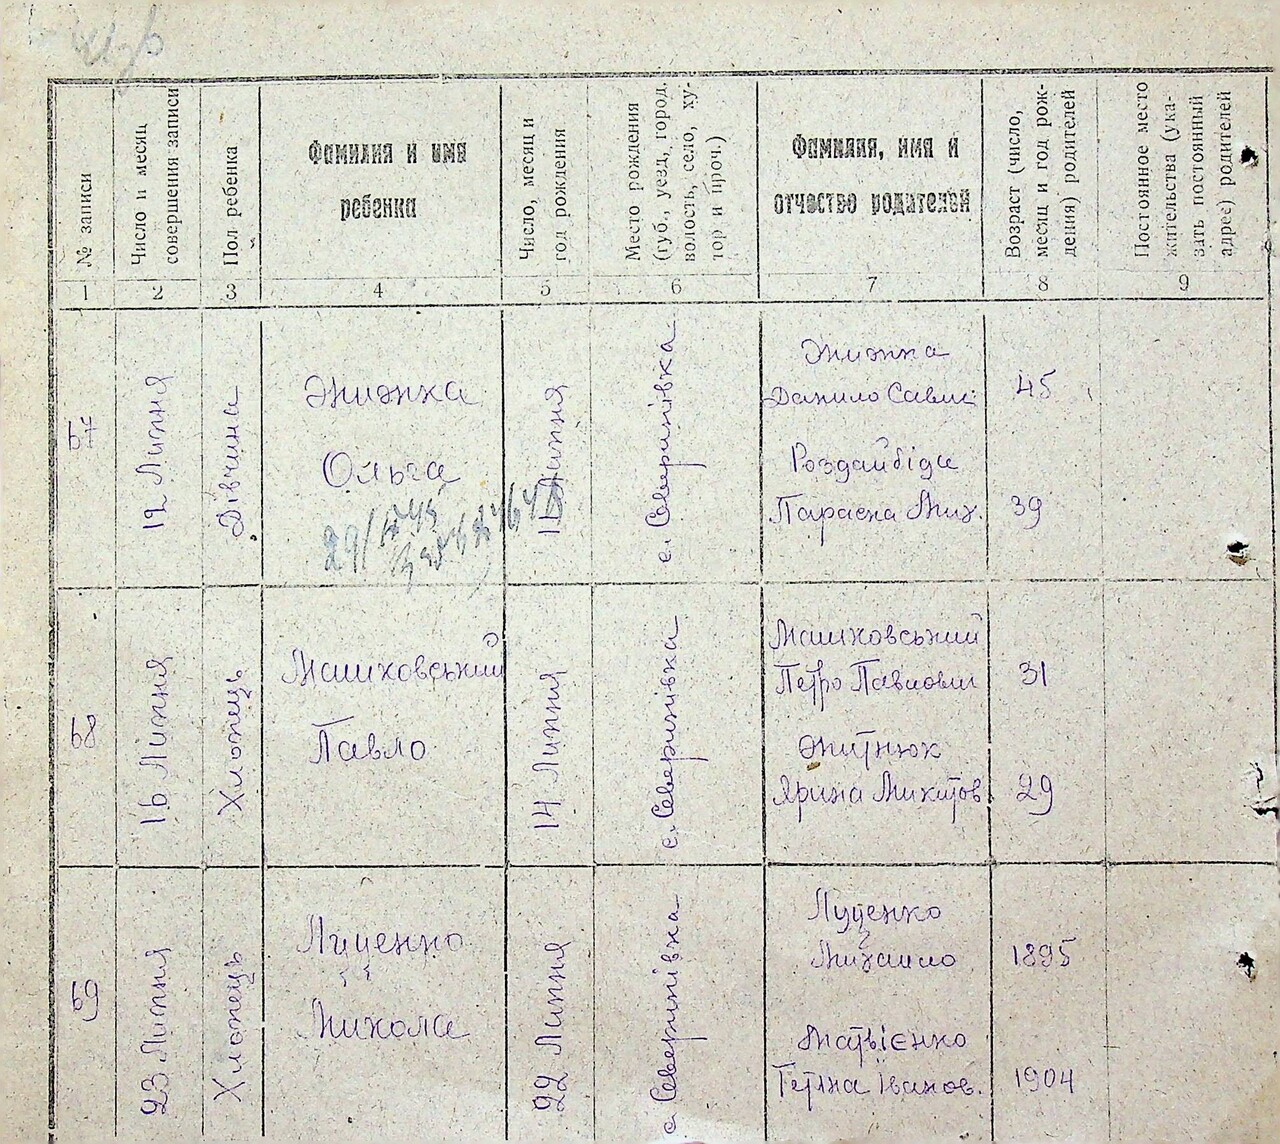 № записи
Число и месяц
совершения записи
Пол ребенка
Фамилия и имя
ребенка
Число, месяц и
год рождения
Место рождения
(губ., уезд, город,
волость, село, ху-
тор и проч.)
Фамилия, имя и
отчество родителей
Возраст (число,
месяц и год рож-
дения) родителей
Постоянное место
жительства (ука-
зать постоянный
адрес) родителей
1 2 3 4 5 6 7 8 9
67
12 Липня
Дівчина
Жижка
Ольга
11 Липня
с. Северинівка
Жижка
Данило Савич
45
Роздайбіда
Параска Мих.
39
68
16 Липня
Хлопець
Машковський
Павло
14 Липня
с. Северинівка
Машковський
Петро Павлович
31
Житнюк
Ярина Микитов.
29
69
23 Липня
Хлопець
Луценко
Микола
22 Липня
с. Северинівка
Луценко
Михаило
1895
Матвієнко
Тетяна Іванов.
1904